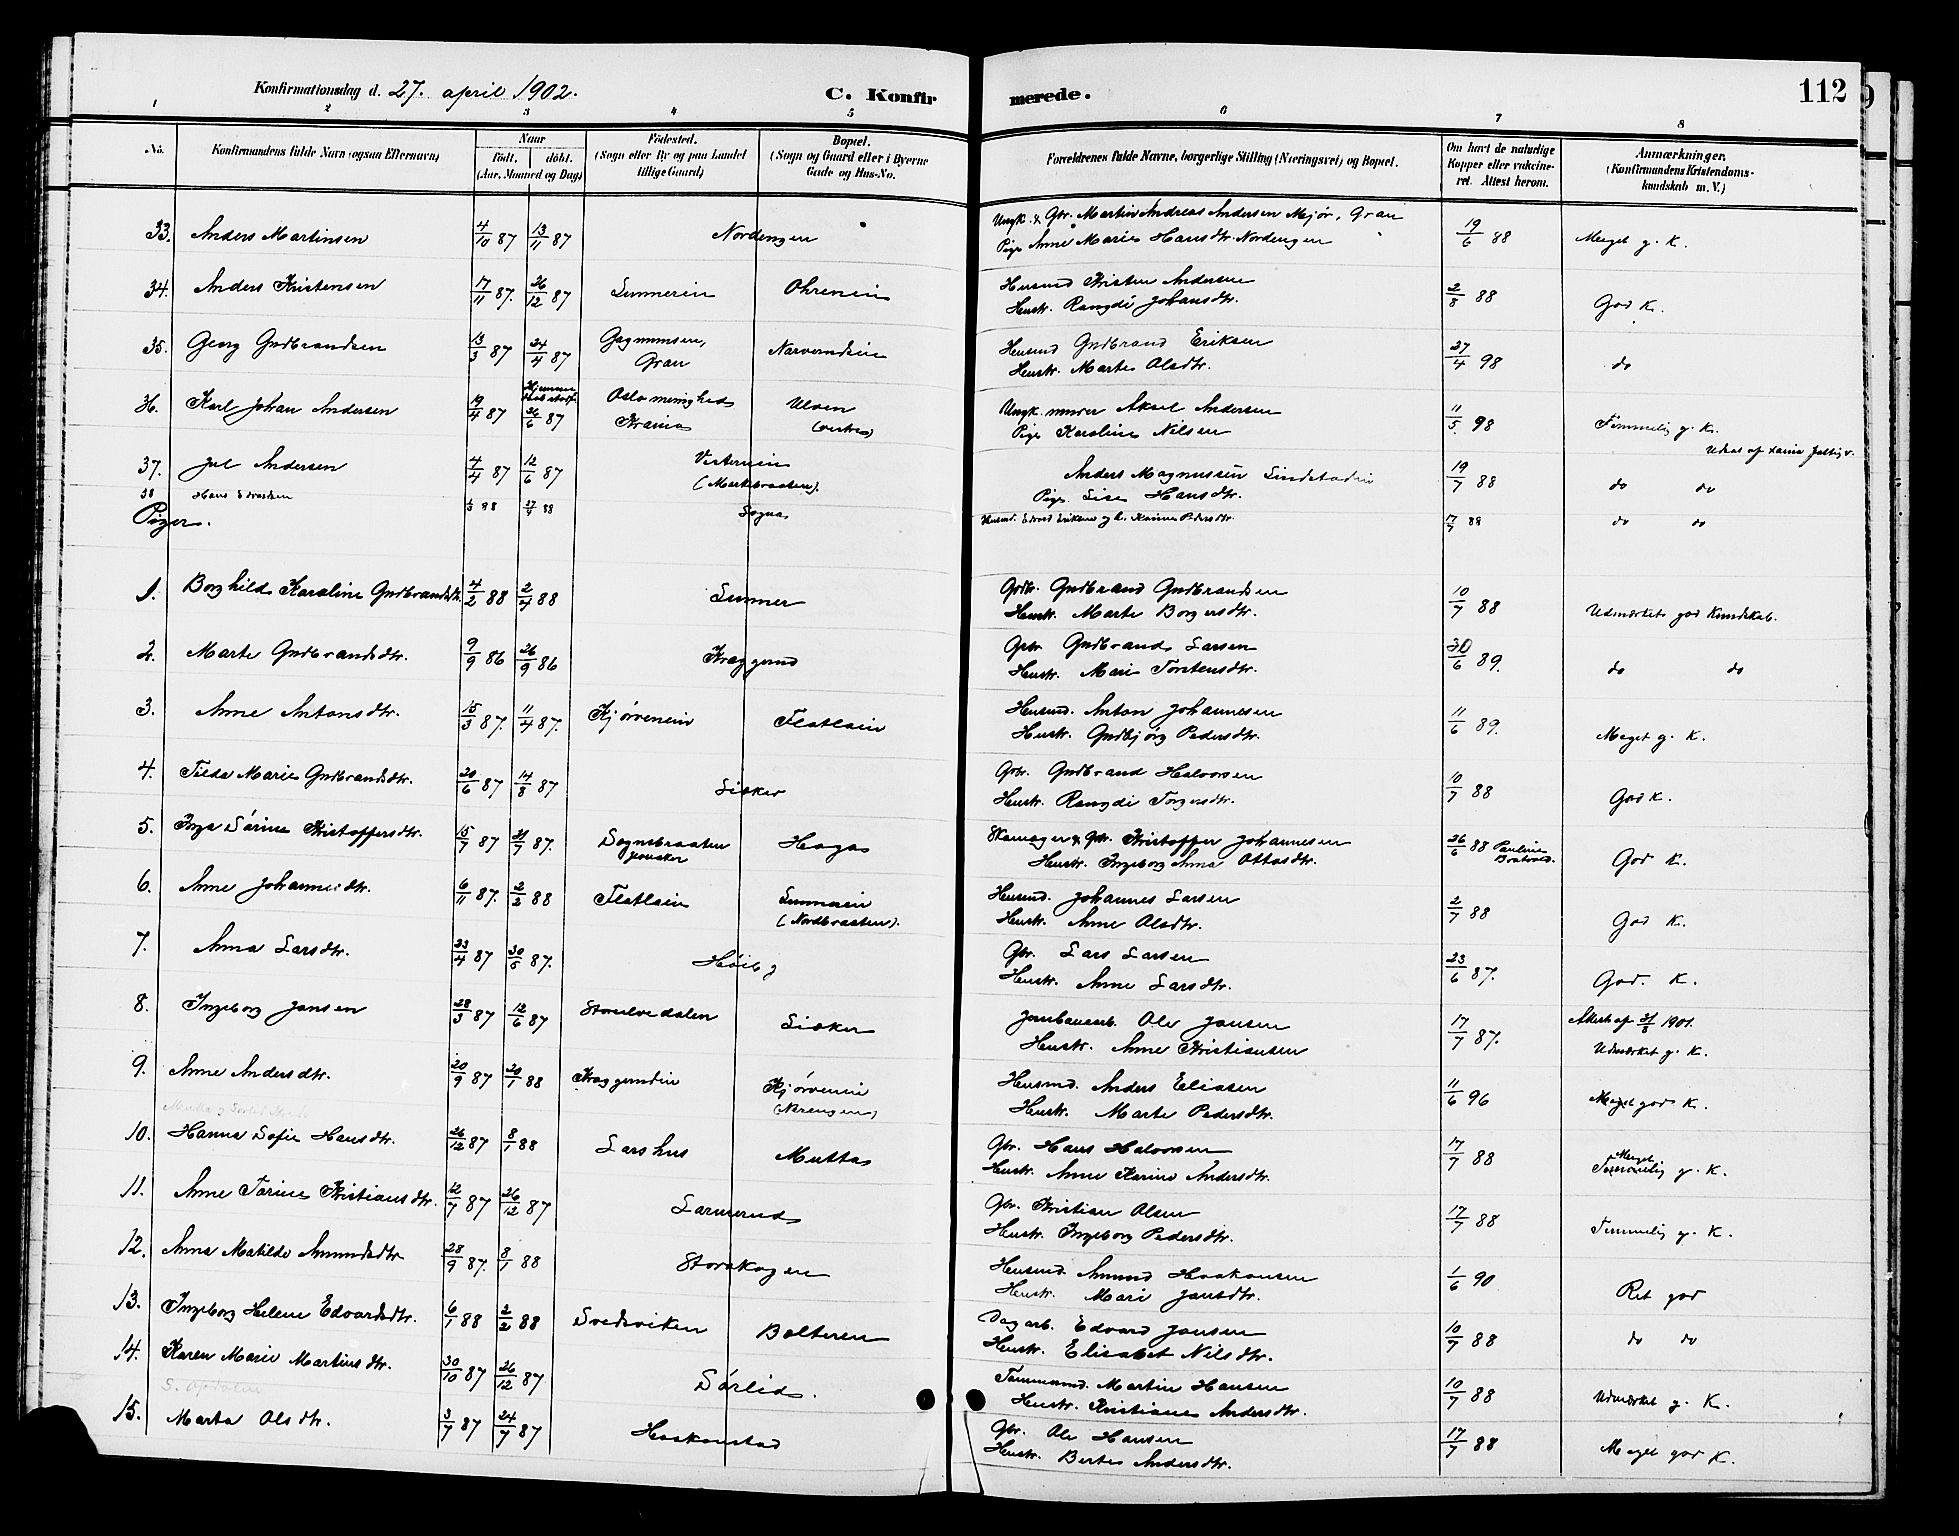 Konfirmationsdag d. 27. april 1902.
C. Konfirmerede.
112
1 2 3 4 5 6 7 8
No. Konfirmandens fulde Navn (ogsaa Efternavn) Naar født, døbt. (Aar, Maaned og Dag) Fødested. (Sogn eller By og paa Landet tillige Gaard) Bopæl. (Sogn og Gaard eller i Byerne Gade og Hus-No. Forældrenes fulde Navne, borgerlige Stilling (Næringsvei) og Bopæl. Om havt de naturlige Kopper eller vakcineret. Attest herom. Anmærkninger. (Konfirmandens Kristendomskundskab m. V.)
33. Anders Martinsen 4/10 87 13/11 87 Nordengen Ungk. & Gbr. Martin Andreas Andersen Mejør, Gran 19/6 88 Meget g. K.
Pige Anne Marie Hansdtr. Nordengen
34. Anders Kristensen 17/11 87. 26/12 87 Sunnerein Ohrenein Husmd Kristen Andersen 2/8 88 God K.
Hustr. Rangdi Johansdtr.
35. Georg Gudbrandsen 13/3 87 24/4 87 Gran Husmd Gudbrand Eriksen 27/4 98 do
Hustr. Marte Olsdtr.
36. Karl Johan Andersen 19/4 87 26/6 87 Oslo menighed Ulven Ungk. murer Aksel Andersen 11/5 98 Temmelig g. K.
Pige Karoline Nilsen
37. Jul Andersen 4/4 87 12/6 87 Vesternein Anders Magnussen 19/7 88 do do
Pige Lise Hansdtr.
38 Hans Edvardsen 88 88 Sogna Husmd. Edvard Eriksen og h. Karine Pedersdtr. 17/7 88 do do
Piger.
1. Borghild Karoline Gudbrandsdtr. 4/2 88 2/4 88 Sunner Grdbr. Gudbrand Gudbrandsen 10/7 88 Udmærket god Kundskab.
Hustr. Marte Borgersdtr.
2. Marte Gudbrandsdtr. 9/9 86 26/9 86 Kraggerud Gbr. Gudbrand Larsen 30/6 89. do do
Hustr. Mari Torstensdtr.
3. Anne Antonsdtr. 15/3 87. 11/4 87. Kjørvenein Flatlaein Husmd. Anton Johannesen 11/6 89. Meget g. K.
Hustr. Gudbjørg Pedersdtr.
4. Tilda Marie Gudbrandsdtr. 20/6 87 14/8 87 Lisker Gbr. Gudbrand Halvorsen 10/7 88 God K.
Hustr. Rangdi Torgersdtr.
5. Inga Sørine Kristoffersdtr. 15/7 87 31/7 87. Sognsbraaten Haga Skomager & Gbr. Kristoffer Johannesen 26/6 88 Pauline God K.
Hustr. Ingeborg Anna Ottosdtr.
6. Anne Johannesdtr. 6/11 87. 2/2 88 Flatlaein Sunnerein Husmd. Johannes Larsen 2/7 88 God K.
(Nordbraaten). Hustr. Anne Olsdtr.
7. Anna Larsdtr. 23/4 87 30/5 87. Høiby Gbr. Lars Larsen 23/6 87. God. K.
Hustr. Anne Larsdtr.
8. Ingeborg Jansen 28/3 87 12/6 87 Storelvedalen Lisker Jernbanearb. Ole Jansen 17/7 87. Attest af 31/8 1901.
Hustr. Anne Kristiansen Udmærket g. K.
9. Anne Andersdtr. 20/9 87 20/1 88 Kraggerudein Kjørvenein Husmd. Anders Eliasen 11/6 96 Meget god K.
Hustr. Marte Pedersdtr.
10. Hanna Sofie Hansdtr. 26/12 87 8/1 88 Larshus Mutta Gbr. Hans Halvorsen 17/7 88 Meget
Hustr. Anne Karine Andersdtr. Temmelig g. K.
11. Anne Torine Kristiansdtr. 12/7 87 26/12 87 Larmerud Gbr. Kristian Olsen 17/7 88 Temmelig g. K.
Hustr. Ingeborg Pedersdtr.
12. Anna Matilde Amundsdtr. 28/9 87. 8/1 88 Storskogen Husmd. Amund Haakonsen 1/6 90 Ret god
Hustr. Mari Jansdtr.
13. Ingeborg Helene Edvardsdtr. 6/1 88 2/2 88 Svedsviken Bolteren Dagarb. Edvard Jansen 10/7 88 do do
Hustr. Elisabet Nilsdtr.
14. Karen Marie Martinsdtr. 30/10 87 26/12 87 Sørlid. Tømmermd. Martin Hansen 10/7 88 Udmærket g. K.
Hustr. Kristiane Andersdtr.
15. Marta Olsdtr. 3/7 87 24/7 87 Haakonstad Gbr. Ole Hansen 17/7 88 Meget god K.
Hustr. Berte Andersdtr.